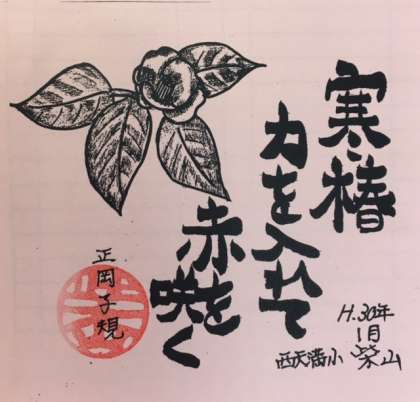 寒椿
力を入れて
赤を咲く
正岡子規
H.30年
1月
西天満小 榮山